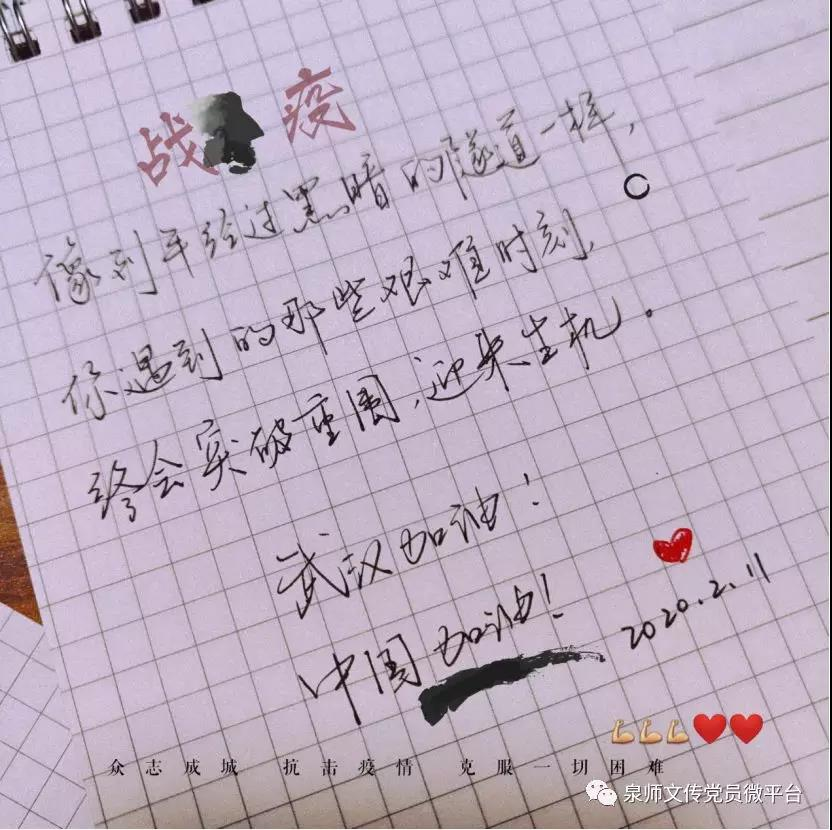 战疫
像列车经过黑暗的隧道一样，
你遇到的那些艰难时刻，
终会突破重围，迎来生机。
武汉加油！
中国加油！
2020.2.11
众志成城 抗击疫情 克服一切困难
泉师文传党员微平台